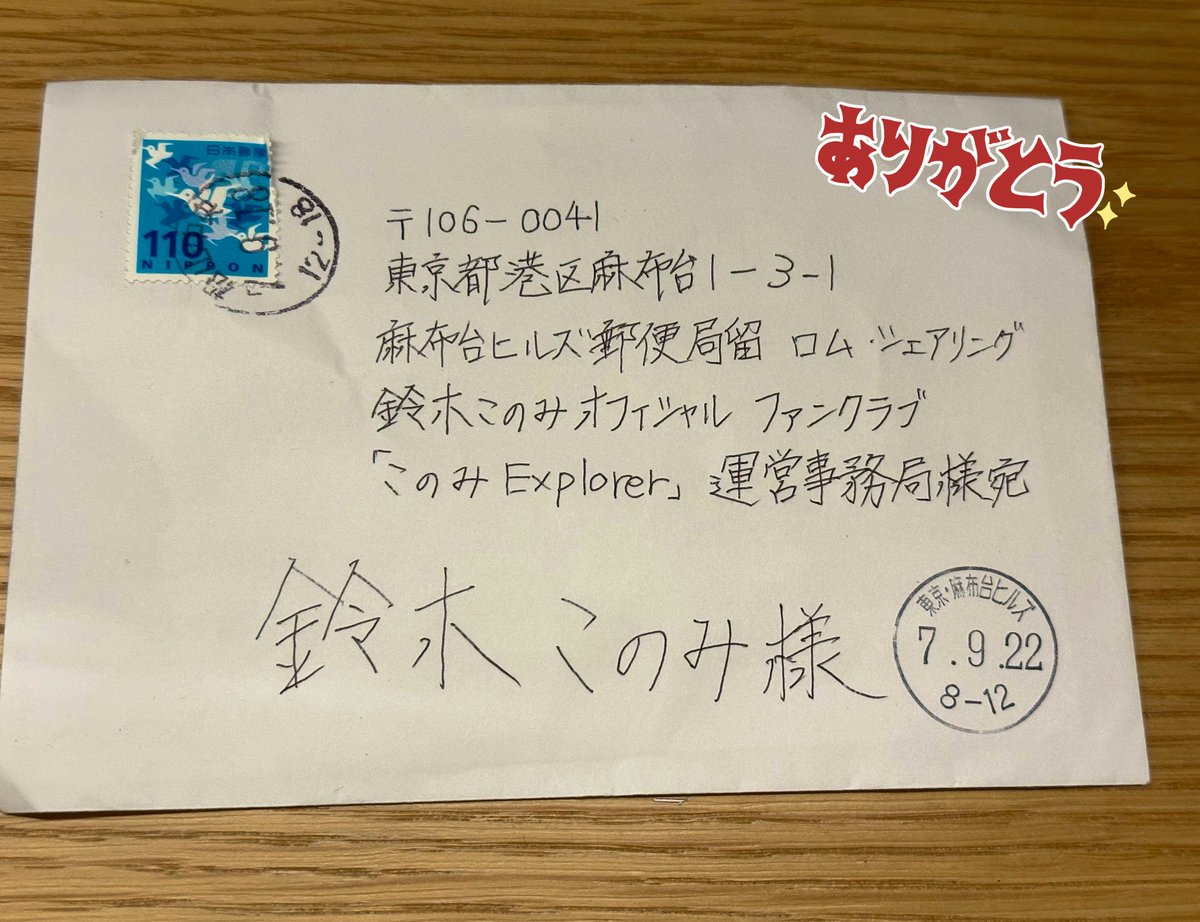 日本郵便
110
NIPPON
12-18
ありがとう
〒106-0041
東京都港区麻布台1-3-1
麻布台ヒルズ郵便局留 ロム・シェアリング
鈴木このみオフィシャル ファンクラブ
「このみ Explorer」運営事務局様宛
鈴木このみ様
東京・麻布台ヒルズ
7.9.22
8-12